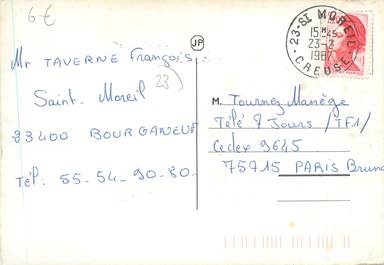 6€
JP
23-ST MOREIL
15H45
23-2
1987
CREUSE
Mr TAVERNE François
Saint. Moreil
23)
23400 BOURGANEUF
Tél: 55-54-90-80-
M. Tournez Manège
Télé 7 Jours /TF1/
Cedex 9645
75915 PARIS Brune